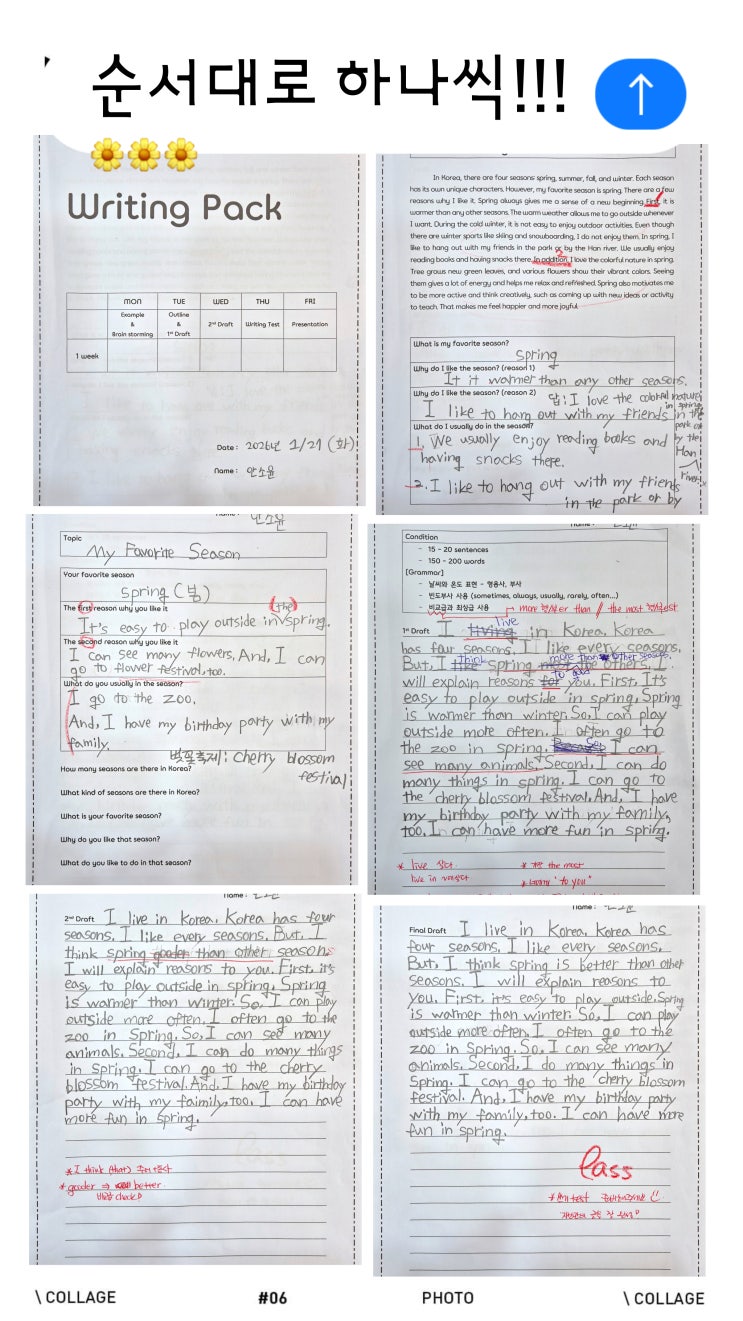 순서대로 하나씩!!!
Writing Pack
MON TUE WED THU FRI
Example & Brain storming
Outline & 1st Draft
2nd Draft
Writing Test
Presentation
1 week
Date : 2026년 1/27 (화)
Name : 안소윤
In Korea, there are four seasons spring, summer, fall, and winter. Each season
has its own unique characters. However, my favorite season is spring. There are a few
reasons why I like it. Spring always gives me a sense of a new beginning. First, it is
warmer than any other seasons. The warm weather allows me to go outside whenever
I want. During the cold winter, it is not easy to enjoy outdoor activities. Even though
there are winter sports like skiing and snowboarding, I do not enjoy them. In spring, I
like to hang out with my friends in the park or by the Han river. We usually enjoy
reading books and having snacks there. In addition, I love the colorful nature in spring.
Tree grows new green leaves, and various flowers show their vibrant colors. Seeing
them gives a lot of energy and helps me relax and refreshed. Spring also motivates me
to be more active and think creatively, such as coming up with new ideas or activity
to teach. That makes me feel happier and more joyful.
What is my favorite season?
Spring
Why do I like the season? (reason 1)
It it warmer than any other seasons.
Why do I like the season? (reason 2)
답: I love the colorful nature in spring
I like to hang out with my friends in the park or by the Han river.
What do I usually do in the season?
1. We usually enjoy reading books and
having snacks there.
2. I like to hang out with my friends
in the park or by
안소윤
Topic
My Favorite Season
Your favorite season
Spring (봄)
The first reason why you like it
(the)
It's easy to play outside in spring.
The second reason why you like it
I can see many flowers, And, I can
go to flower festival, too.
What do you usually in the season?
I go to the zoo.
And, I have my birthday party with my
family.
벚꽃축제: Cherry blossom
festival
How many seasons are there in Korea?
What kind of seasons are there in Korea?
What is your favorite season?
Why do you like that season?
What do you like to do in that season?
Condition
- 15 - 20 sentences
- 150 - 200 words
[Grammar]
- 날씨와 온도 표현 - 형용사, 부사
- 빈도부사 사용 (sometimes, always, usually, rarely, often...)
- 비교급과 최상급 사용
1st Draft I living live in Korea. Korea
has four seasons. I like every seasons.
But, I think spring more than other seasons. I
will explain reasons to you. First, It's
easy to play outside in spring. Spring
is warmer than winter. So, I can play
outside more often. I often go to
the zoo in spring. So, I can
see many animals. Second, I can do
many things in spring. I can go to
the cherry blossom festival. And, I have
my birthday party with my family,
too. I can have more fun in spring.
* live 살다
live in ~에 살다
2nd Draft I live in Korea. Korea has four
seasons. I like every seasons. But, I
think spring gooder than other seasons
I will explain reasons to you. First, it's
easy to play outside in spring. Spring
is warmer than winter. So, I can play
outside more often. I often go to the
zoo in Spring. So, I can see many
animals. Second, I can do many things
in Spring. I can go to the cherry
blossom festival. And, I have my birthday
party with my faimily, too. I can have
more fun in spring.
* I think (that) 주어+동사
* gooder ⇒ better
Final Draft I live in Korea. Korea has
four seasons. I like every seasons.
But, I think spring is better than other
seasons. I will explain reasons to
you. First, it's easy to play outside. Spring
is warmer than winter. So, I can play
outside more often. I often go to the
zoo in Spring. So, I can see many
animals. Second, I do many things in
Spring. I can go to the cherry blossom
festival. And, I have my birthday party
with my family, too. I can have more
fun in spring.
Pass
\ COLLAGE #06 PHOTO \ COLLAGE